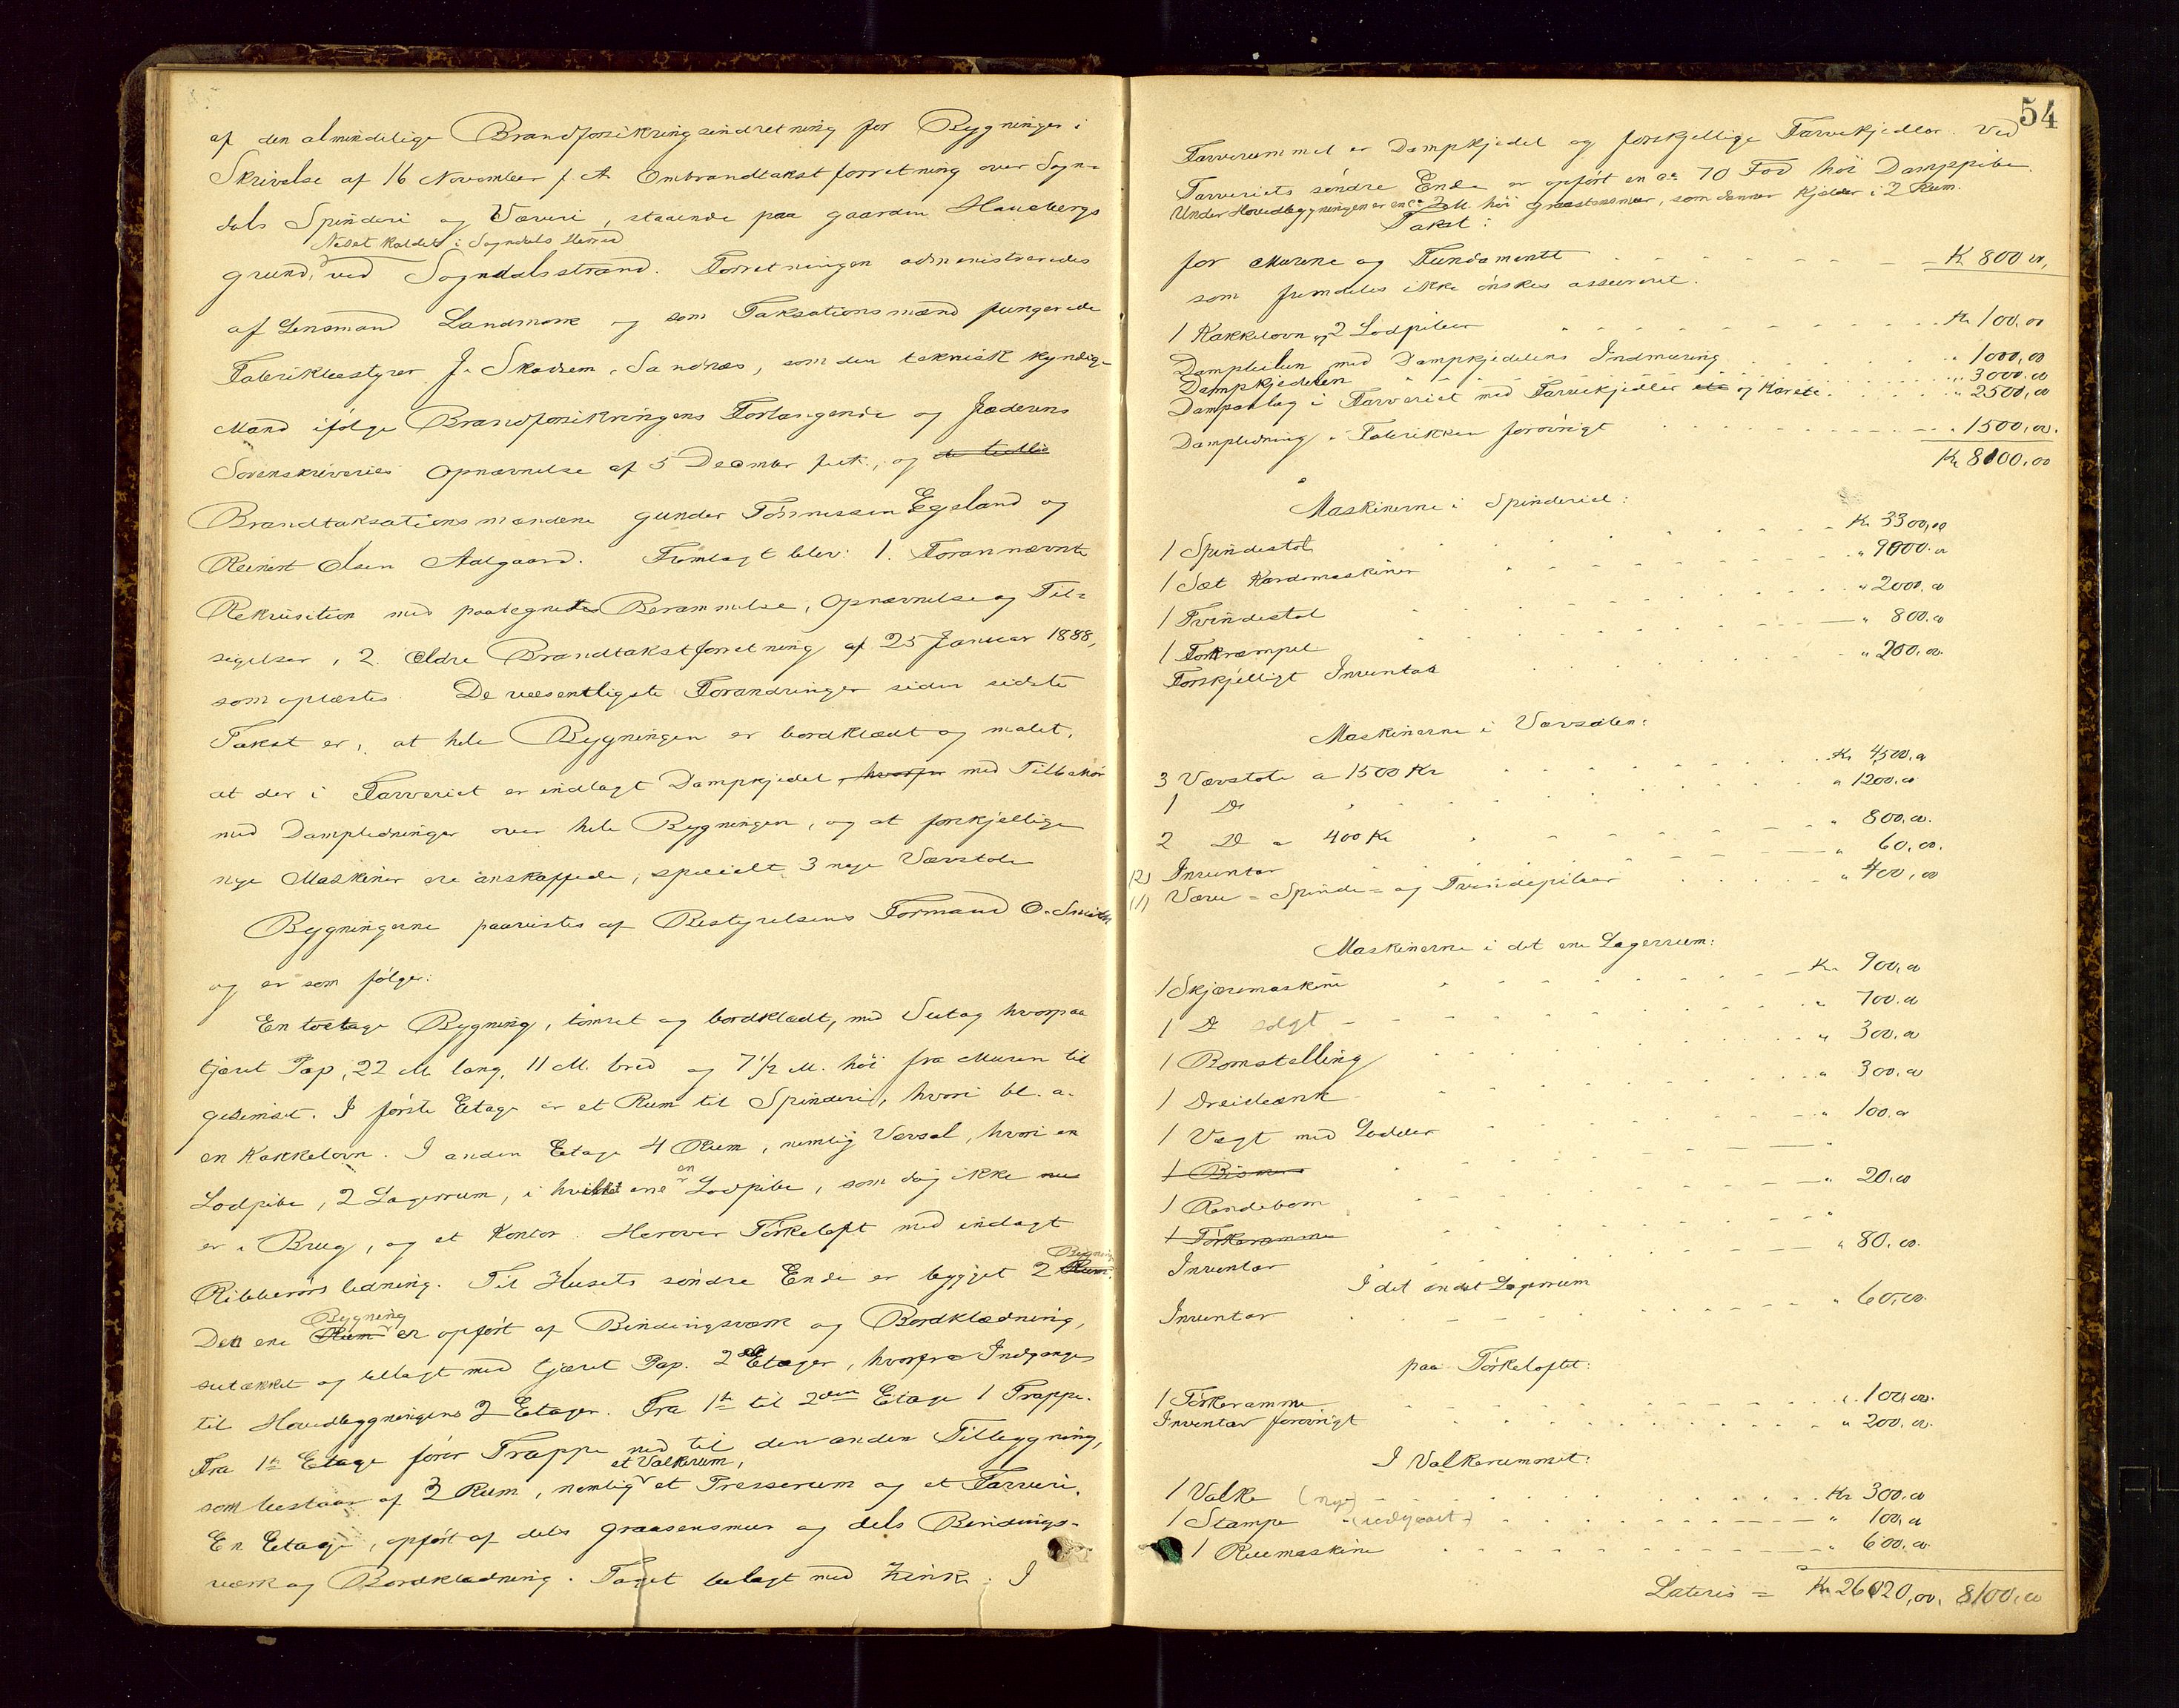 af den almindelige Brandforsikringsindretning for Bygninger i
Skrivelse af 16 November f. A. Ombrandtakstforretning over Sogn-
dals Spinderi og Væveri, staaende paa gaarden Hanebergs
Neset kaldet i Sogndals Herred
grund, ved Sogndalsstrand. Forretningen administreredes
af Lensmand Landmark og som Taksationsmænd fungerede
Fabrikbestyrer J. Skadsem, Sandnæs, som den teknisk kyndige
Mand ifølge Brandforsikringens Forlangende og Jæderens
Sorenskriveries Opnævnelse af 5 Decembr f. A., og
Brandtaksationsmændene Gunder Tönnessen Egeland og
Reinert Olsen Aalgaard. Fremlagt blev: 1. Forannævnte
Rekvisition med paategnede Berammelse, Opnævnelse og Til-
sigelser, 2. Ældre Brandtakstforretning af 25 Januar 1888,
som oplæstes. De væsentligste Forandringer siden sidste
Takst er, at hele Bygningen er bordklædt og malet,
at der i Farveriet er indlagt Dampkjedel, hvorfor med Tilbehør
med Dampledninger over hele Bygningen, og at forskjellige
nye Maskiner ere anskaffede, specielt 3 nye Vævstole
Bygningerne paavistes af Bestyrelsens Formand O. Smith
og er som følger:
En toetage Bygning, tømret og bordklædt, med Sutag hvorpaa
tjæret Pap, 22 M. lang, 11 M. bred og 7½ M. høi fra Muren til
gesimset. I første Etage er et Rum til Spinderi, hvori bl. a.
en Kakkelovn. I anden Etage 4 Rum, nemlig Vævsal, hvori en
Lodpibe, 2 Lagerrum, i hvilket ene en Lodpibe, som dog ikke nu
er i Brug, og et Kontor. Herover Tørkeloft med indlagt
Ribberørsledning. Til Husets søndre Ende er bygget 2 Rum
Bygning
Den ene Rum er opført af Bindingsværk og Bordklædning,
sutækket og belagt med tjæret Pap. 2 Etager, hvorfra Indgange
til Hovedbygningens 2 Etager. Fra 1ste til 2den Etage 1 Trappe.
Fra 1ste Etage fører Trappe ned til den anden Tilbygning,
et Valkerum,
som bestaar af 3 Rum, nemlig et Presserum og et Farveri.
En Etage, opført af dels graasensmur og dels Bindings-
værk og Bordklædning. Taget belagt med Zink. I
54
Farverummet er Dampkjedel og forskjellige Farvekjedler. Ved
Farveriets søndre Ende er opført en ca 70 Fod høi Damppibe.
Under Hovedbygningen er en ca 2 M. høi graastensmur, som danner Kjælder i 2 Rum.
Takst:
for Murene og Fundamentet Kr 800 00,
som fremdeles ikke ønskes assureret.
1 Kakkelovn og 2 Lodpiber Kr 100.00
Damppiben med Dampkjedelens Indmuring " 1000,00
Dampkjedelen " 3000.00
Dampanlæg i Farveriet med Farvekjedler etc og Karete. " 2500,00
Dampledning i Fabrikken forøvrigt " 1500,00.
Kr 8100,00
Maskinerne i Spinderiet:
1 Spindestol Kr 3300,00
1 Sæt Kardmaskiner " 9000.00
1 Tvindestol " 2000.00
1 Forkræmpel " 800.00
Forskjelligt Inventar " 200.00.
Maskinerne i Vævsalen:
3 Vævstole a 1500 Kr Kr 4500.00
1 Do " 1200.00
2 Do a 400 Kr " 800.00.
(2) Inventar " 60,00.
(1) Væve- Spinde- og Tvindepiber " 400,00
Maskinerne i det ene Lagerrum:
1 Skjæremaskine Kr 900,00
1 Do solgt " 700.00
1 Bomstelling " 300.00
1 Dreiebænk " 300.00
1 Vægt med Lodder " 100.00
1 Bismer "
1 Rendebom " 20.00
1 Tørkeramme "
Inventar " 80.00.
I det andet Lagerrum
Inventar " 60,00.
paa Tørkeloftet:
1 Tørkeramme " 100,00.
Inventar forøvrigt " 200.00.
I Valkerummet:
1 Valke (nye) Kr 300.00
1 Stampe (udgaaet) " 100,00
1 Ruemaskine " 600.00.
Lateris = Kr 26020,00. 8100,00